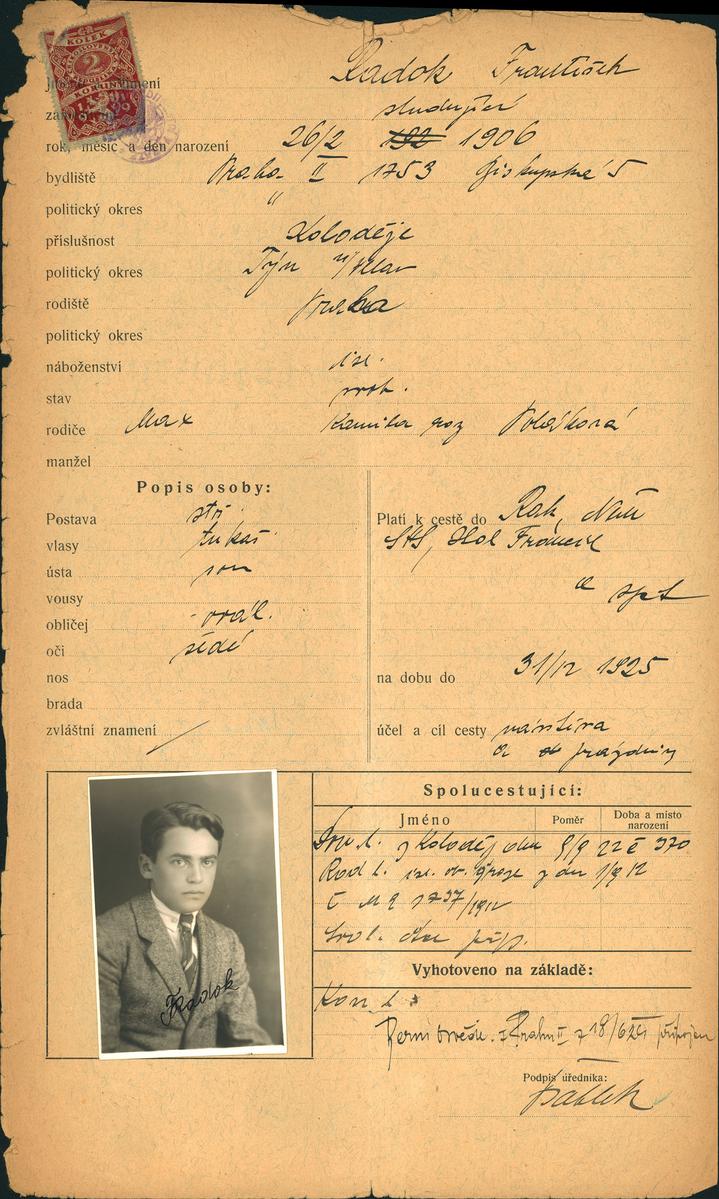 KOLEK
2
KORUNY
jméno a příjmení Radok František
zaměstnání studující
rok, měsíc a den narození 26/2 192 1906
bydliště Praha II 1753 Biskupská 5
politický okres "
příslušnost Koloděje
politický okres Týn n/Vltav
rodiště Praha
politický okres
náboženství izr.
stav svob.
rodiče Max Kamila roz Poláková
manžel
Popis osoby:
Postava stř
vlasy
ústa
vousy
obličej ovál.
oči šedé
nos
brada
zvláštní znamení
Platí k cestě do Rak, Něm
SHS, Hol Francie
a zpět
na dobu do 31/12 1925
účel a cíl cesty návštěva
a prázdniny
Spolucestující:
Jméno Poměr Doba a místo narození
Dom. l. z Koloděj dne 9/9 22 č 370
Rod l. izr. ob. z dne 1/9 12
č M 2 1737/1912
Vyhotoveno na základě:
z Prahy II z 18/6 25 připojen
Podpis úředníka:
FRadok